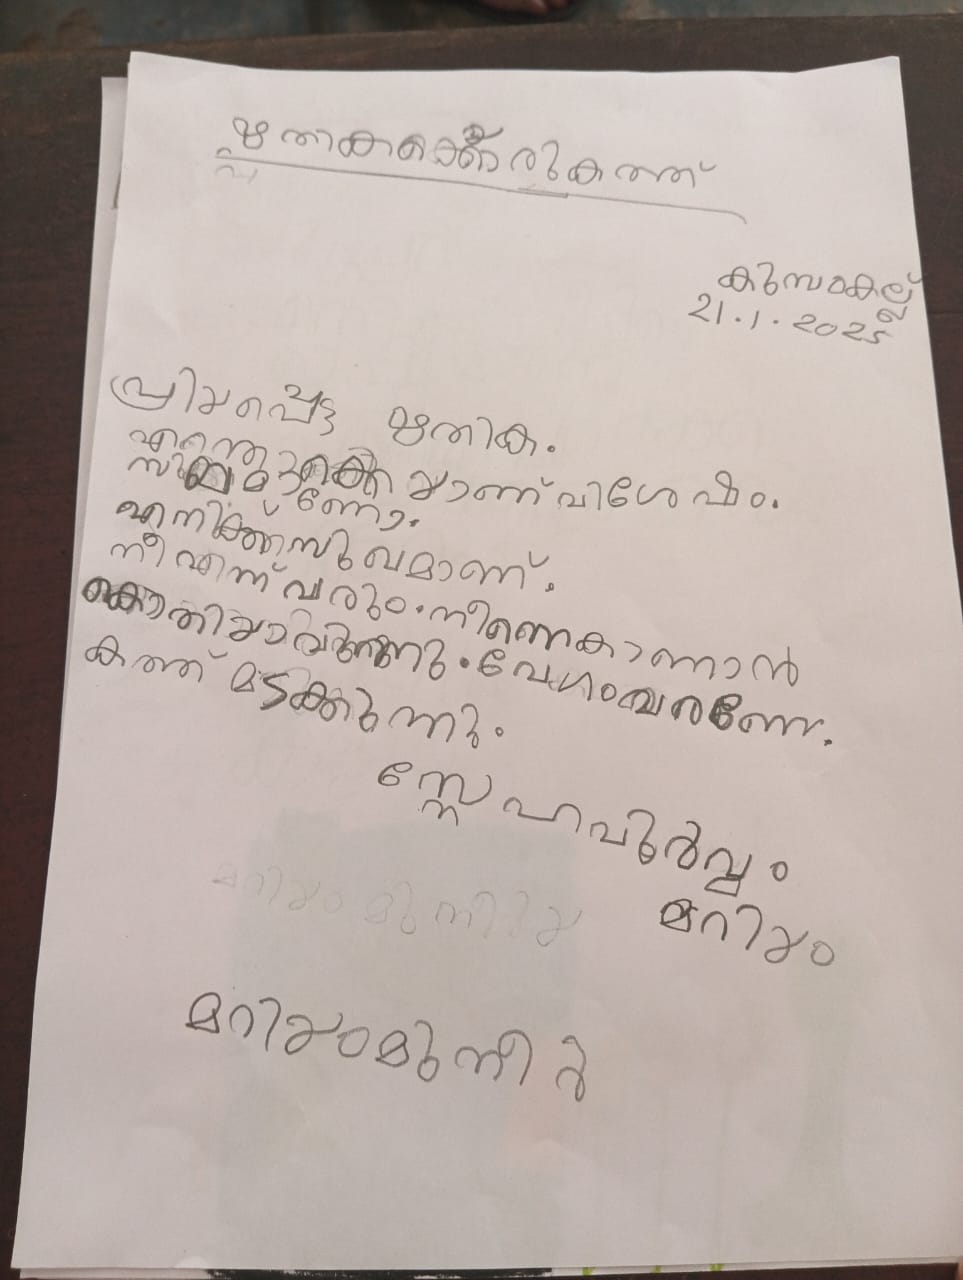 ഋതികക്കൊരുകത്ത്
കുമ്പാകല്ല്
21.1.2025
പ്രിയപ്പെട്ട ഋതിക.
എന്തൊക്കെ യാണ് വിശേഷം.
സുഖമാണോ.
എനിക്ക്സുഖമാണ്.
നീഎന്ന്വരും.നിന്നെകാണാൻ
കൊതിയാവുന്നു.വേഗംവരണേ.
കത്ത് മടക്കുന്നു.
സ്നേഹപൂർവ്വം
മറിയം
മറിയംമുനീർ